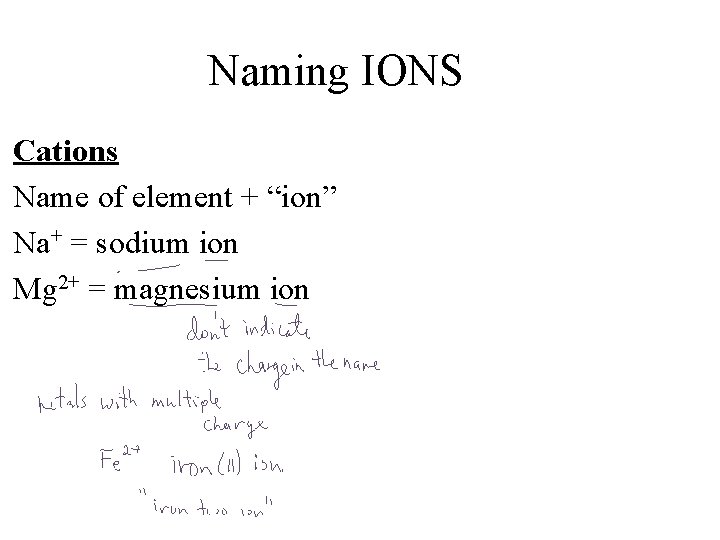 Naming IONS
Cations
Name of element + “ion”
Na⁺ = sodium ion
Mg²⁺ = magnesium ion
don't indicate
the charge in the name
metals with multiple
charge
Fe²⁺ iron (II) ion
"iron two ion"